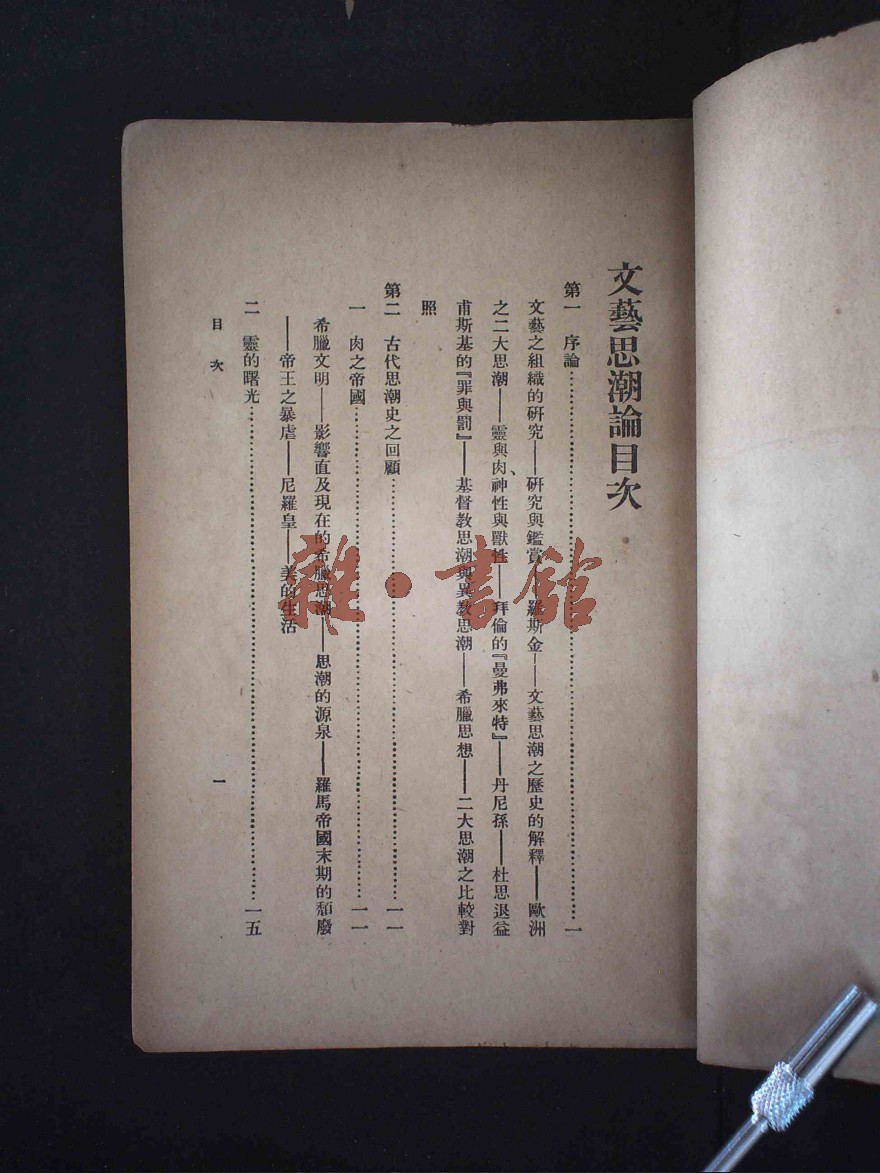 文藝思潮論目次
第一　序論……一
文藝之組織的研究——研究與鑑賞——羅斯金——文藝思潮之歷史的解釋——歐洲
之二大思潮——靈與肉、神性與獸性——拜倫的『曼弗來特』——丹尼孫——杜思退益
甫斯基的『罪與罰』——基督教思潮與異教思潮——希臘思想——二大思潮之比較對
照
第二　古代思潮史之回顧……一一
一　肉之帝國……一一
希臘文明——影響直及現在的希臘思潮——思潮的源泉——羅馬帝國末期的頹廢
——帝王之暴虐——尼羅皇——美的生活
二　靈的曙光……一五
目次
一
雜·書館